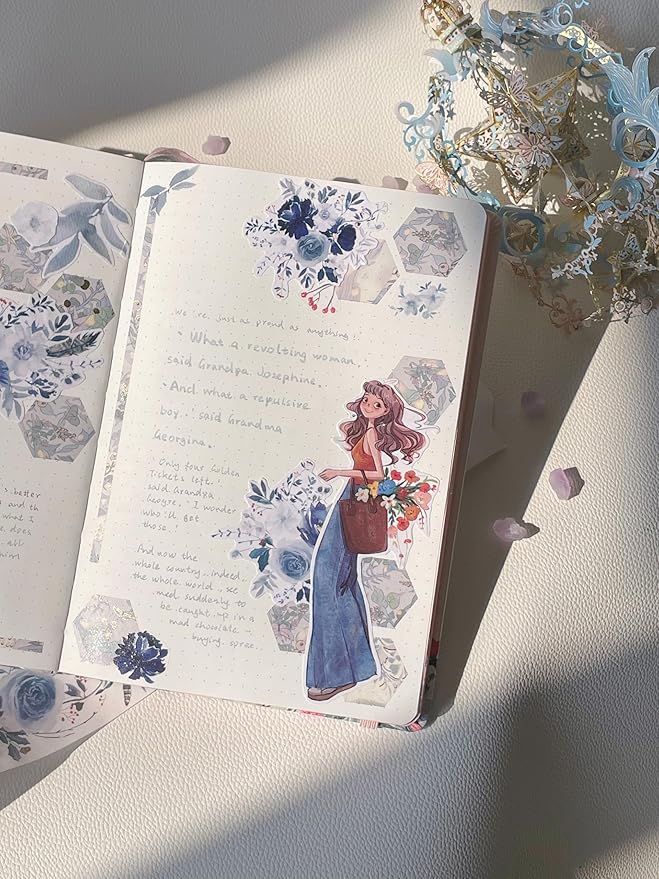 s better
and th
what I
e does
all
him!
We're just as proud as anything!
'What a revolting woman,
said Grandpa Josephine.
'And what a repulsive
boy..' said Grandma
Georgina.
'Only four Golden
Tickets left.'
said Grandpa
George, 'I wonder
who'll get
those.'
And now the
whole country.. indeed,
the whole world.. see
med suddenly to
be caught up in a
mad chocolate -
buying spree.